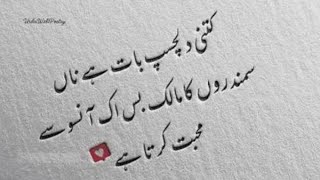 UrduWallPoetry
کتنی دلچسپ بات ہے ناں
سمندروں کا مالک بس اک آنسو سے
محبت کرتا ہے